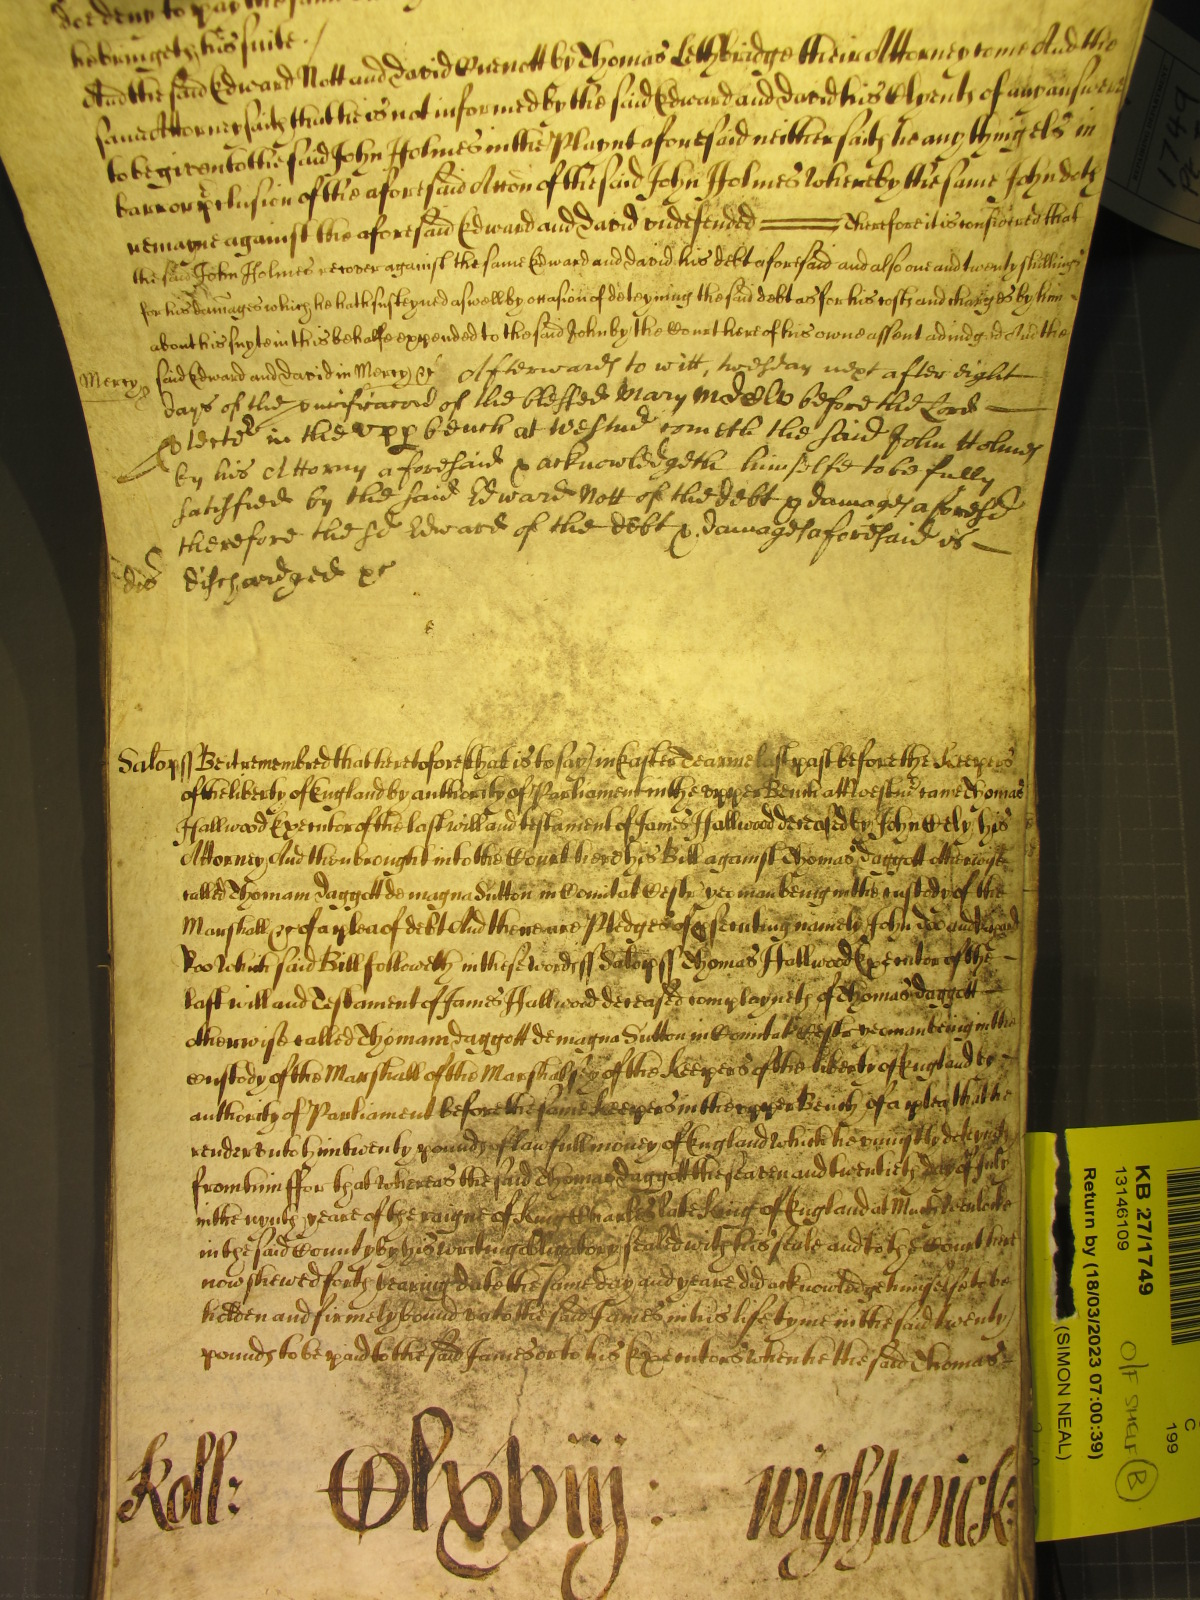 doe deny to pay the same
he bringeth his suite /
And the said Edward Nott and David Evenott by Thomas Lethbridge their Attorney come And the
same Attorney saith that he is not informed by the said Edward and David his Clyents of any answere
to be given to the said John Holmes in the Playnt aforesaid neither saith he any thing els in
barr or preclusion of the aforesaid Accon of the said John Holmes Whereby the same John doth
remayne against the aforesaid Edward and David undefended Therefore it is considered that
the said John Holmes recover against the same Edward and David his debt aforesaid and also one and twenty shillings
for his damages which he hath susteyned aswell by occasion of deteyning the said debt as for his costs and charges by him
about his suyte in this behalfe expended to the said John by the Court here of his owne assent adiudged And the
Mercy said Edward and David in Mercy &c Afterwards to witt, tuesday next after eight
days of the purificacon of the blessed Mary Mdclv before the Lord
Protector in the upp bench at Westmr cometh the said John Holmes
by his Attorny aforesaid & acknowledgeth himselfe to be fully
satisfied by the said Edward Nott of the debt & damages aforesd
therefore the sd Edward of the debt & damages aforesaid is
dis discharged &c
Salop ss Be it remembred that heretofore that is to say in Easter Tearme last past before the Keepers
of the liberty of England by authority of Parliament in the upper Bench att Westmr came Thomas
Hallwood Executor of the last will and testament of James Hallwood deceased by John Wely his
Attorney And then brought into the Court here his Bill against Thomas Daggott otherwise
called Thomam Daggott de magna Sutton in Comitat Cestr yeoman being in the custody of the
Marshall &c of a plea of debt And there are Pledges of prsecuting namely John Doo and Richard
Roo Which said Bill followeth in these words ss Salop ss Thomas Hallwood Executor of the
last will and Testament of James Hallwood deceased complayneth of Thomas Daggott
otherwise called Thomam Daggott de magna Sutton in Comitat Cestr yeoman being in the
custody of the Marshall of the Marshalsey of the Keepers of the liberty of England by
authority of Parliament before the same Keepers in the upper Bench of a plea that he
render unto him twenty pounds of lawfull money of England which he uniustly deteyneth
from him ffor that whereas the said Thomas Daggott the seaven and twentieth day of July
in the nynth yeare of the raigne of King Charles late King of England at Much Wenlocke
in the said County by his writing obligatory sealed with his seale and to the Court here
now shewed forth bearing date the same day and yeare did acknowledge himselfe to be
holden and firmely bound unto the said James in his life tyme in the said twenty
pounds to be paid to the said James or to his Executors when he the said Thomas
Roll: Clxviij: Wightwick:
1749
KB 27/1749
13146109
Return by (18/03/2023 07:00:39)
(SIMON NEAL)
O/F SHELF B
C
199